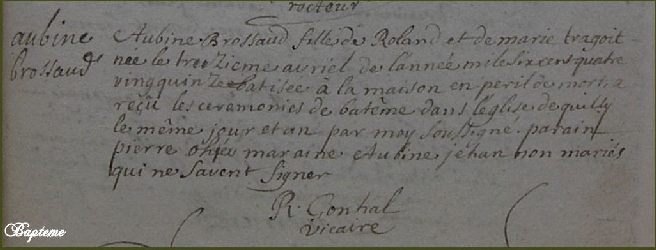 recteur
aubine
brossaud
Aubine Brossaud fille de Roland et de marie tragoit
née le treizieme avriel de lannee mil sixcens quatre
vingquinze batisée a la maison en peril de mort a
reçu les ceremonies de batême dans leglise de quilly
le même jour et an par moy soussigne. parain
pierre maraine Aubine jehan non mariés
qui ne savent signer
R. Gontial
vicaire
Bapteme